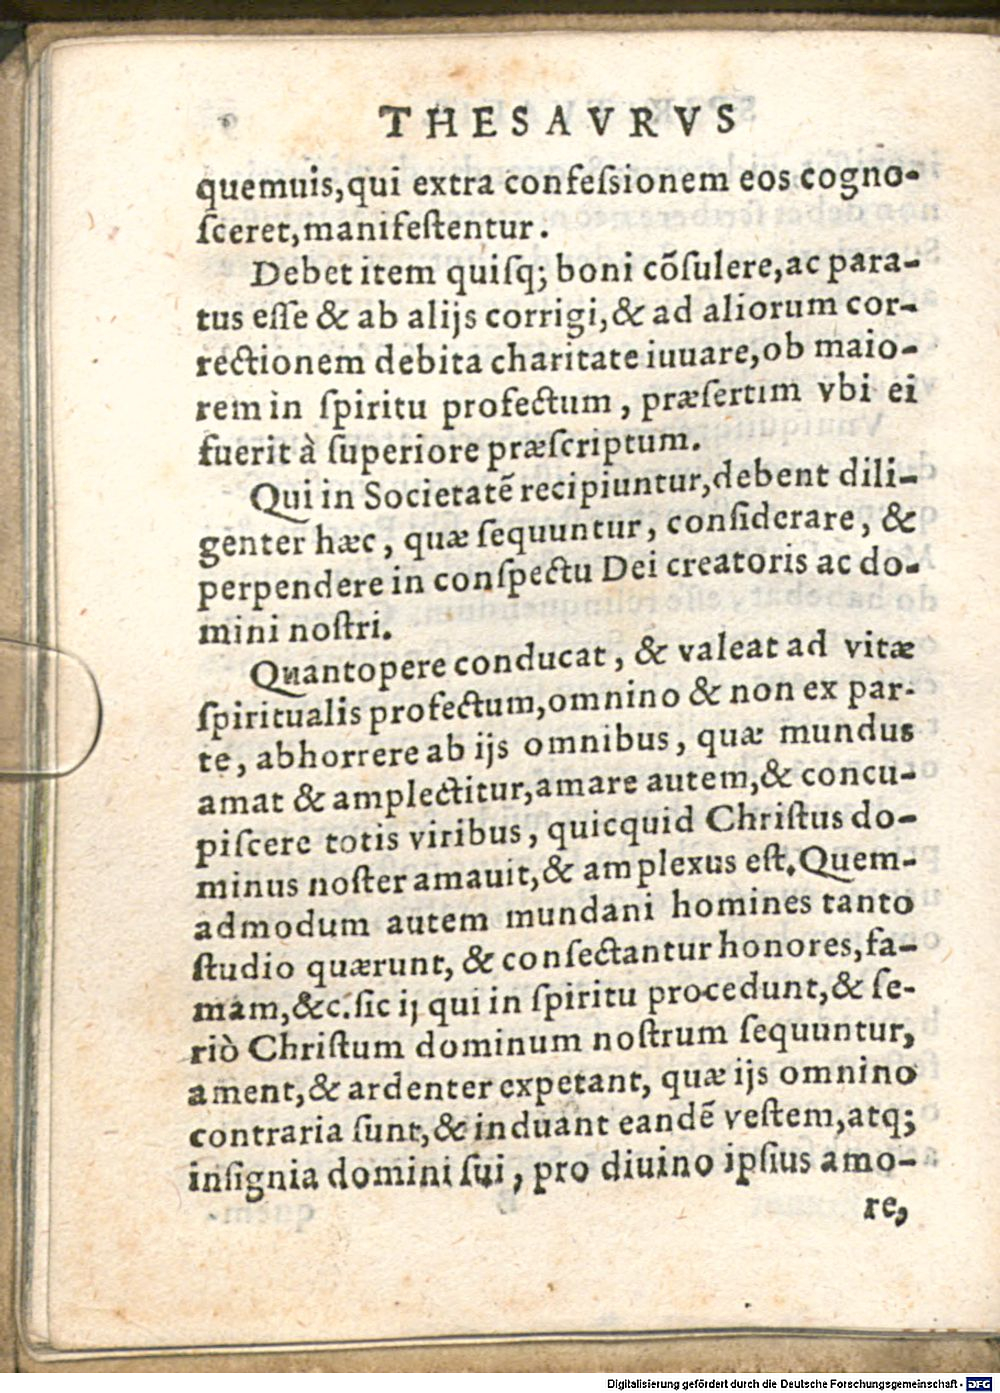 THESAVRVS
quemuis,qui extra confeſsionem eos cogno-
ſceret,manifeſtentur.
Debet item quiſq; boni cõſulere,ac para-
tus eſſe & ab alijs corrigi,& ad aliorum cor-
rectionem debita charitate iuuare,ob maio-
rem in ſpiritu profectum, præſertim vbi ei
fuerit à ſuperiore præſcriptum.
Qui in Societatẽ recipiuntur,debent dili-
genter hæc, quæ ſequuntur, conſiderare, &
perpendere in conſpectu Dei creatoris ac do-
mini noſtri.
Quantopere conducat, & valeat ad vitæ
ſpiritualis profectum,omnino & non ex par-
te, abhorrere ab ijs omnibus, quæ mundus
amat & amplectitur,amare autem,& concu-
piſcere totis viribus, quicquid Chriſtus do-
minus noſter amauit,& amplexus eſt.Quem-
admodum autem mundani homines tanto
ſtudio quærunt, & conſectantur honores,fa-
mam,&c.ſic ij qui in ſpiritu procedunt,& ſe-
riò Chriſtum dominum noſtrum ſequuntur,
ament,& ardenter expetant, quæ ijs omnino
contraria ſunt,& induant eandẽ veſtem,atq;
inſignia domini ſui, pro diuino ipſius amo-
re,
Digitalisierung gefördert durch die Deutsche Forschungsgemeinschaft - DFG